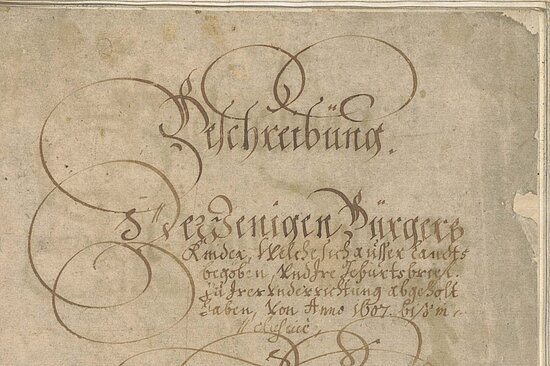 Beschreibung.
Derjenigen Bürgers
Kinder, Welche sich ausser Landts
begeben, Vnd Ire Geburtsbrief.
zu Irer Vnderrichtung abgeholt
haben, von Anno 1607. biß